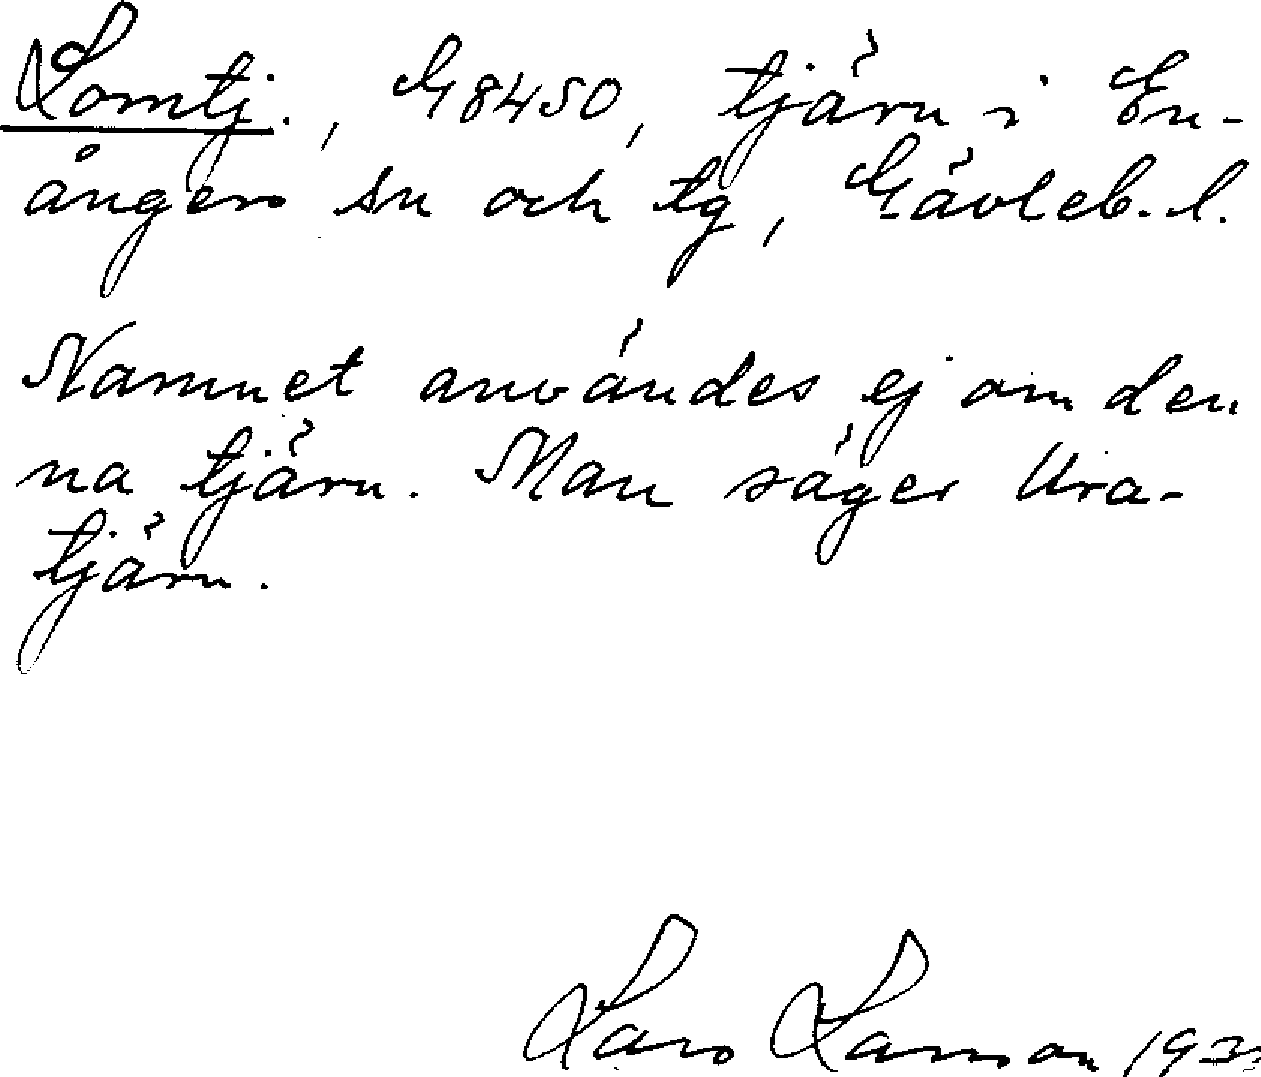 Lomtj., G8450, tjärn i En-
ångers sn och tg, Gävleb. l.
Namnet användes ej om den
na tjärn. Man säger Ura-
tjärn.
Lars Larsson